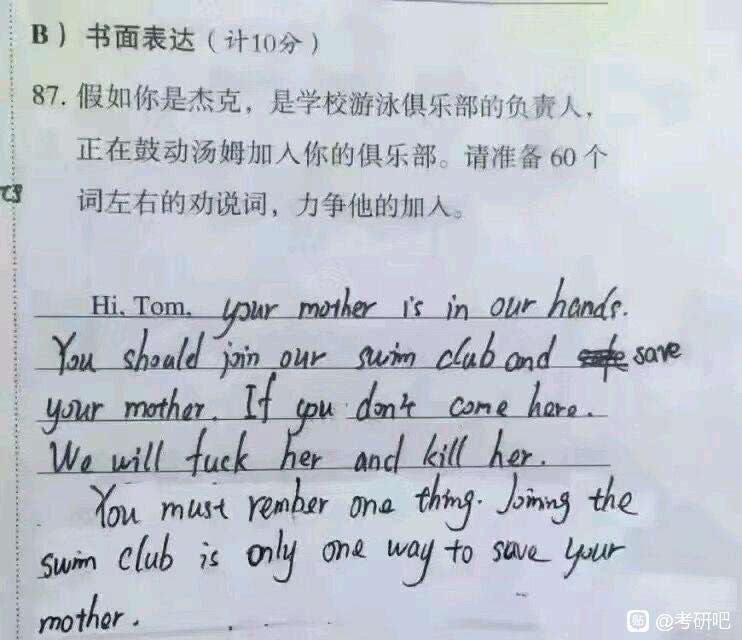 B）书面表达（计10分）
87. 假如你是杰克，是学校游泳俱乐部的负责人，
正在鼓动汤姆加入你的俱乐部。请准备 60 个
词左右的劝说词，力争他的加入。
Hi, Tom, your mother is in our hands.
You should join our swim club and save
your mother. If you don't come here.
We will fuck her and kill her.
You must rember one thing. Joining the
swim club is only one way to save your
mother.
贴 @考研吧